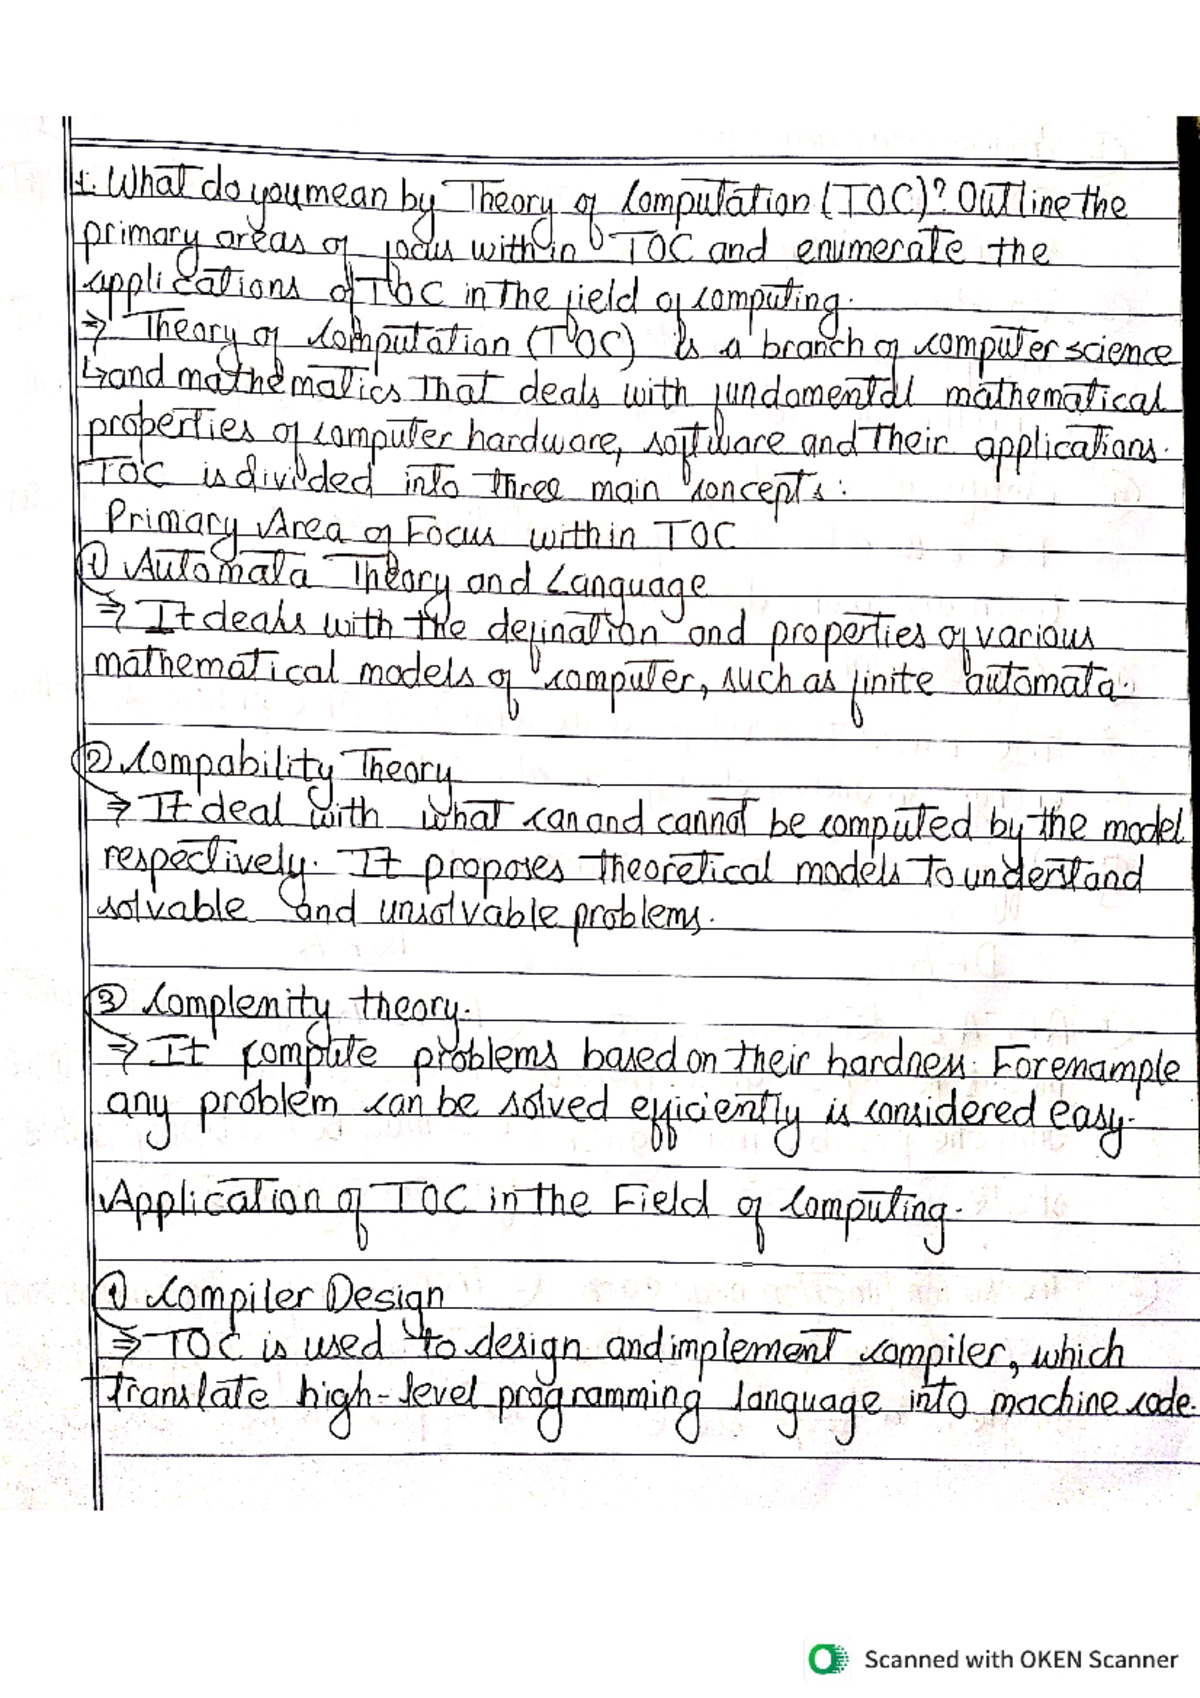 1. What do you mean by Theory of Computation (TOC)? Outline the
primary areas of focus within TOC and enumerate the
applications of TOC in the field of computing.
⇒ Theory of Computation (TOC) is a branch of computer science
↳and mathematics that deals with fundamental mathematical
properties of computer hardware, software and their applications.
TOC is divided into three main concepts:
Primary Area of Focus within TOC
① Automata Theory and Language
⇒ It deals with the defination and properties of various
mathematical models of computer, such as finite automata.
② Compability Theory
⇒ It deal with what can and cannot be computed by the model
respectively. It proposes theoretical models to understand
solvable and unsolvable problems.
③ Complenity theory.
⇒ It compute problems based on their hardness. For enample
any problem can be solved efficiently is considered easy.
Application of TOC in the Field of Computing.
① Compiler Design
⇒ TOC is used to design and implement compiler, which
translate high-level programming language into machine code.
Scanned with OKEN Scanner